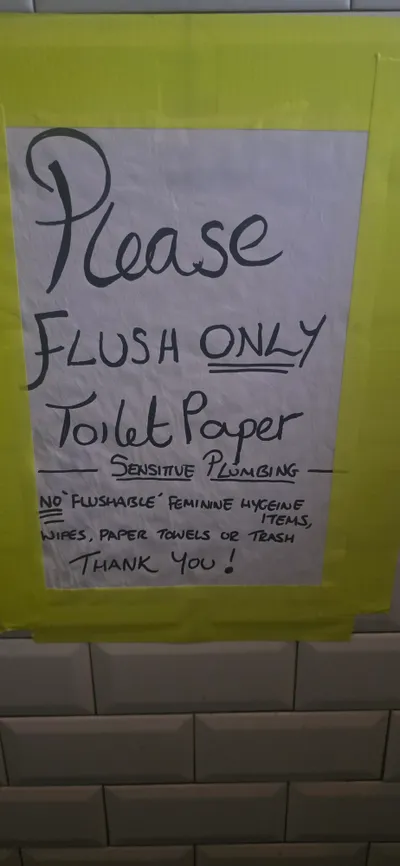 Please
FLUSH ONLY
Toilet Paper
SENSITIVE PLUMBING
NO 'FLUSHABLE' FEMININE HYGEINE
ITEMS,
WIPES, PAPER TOWELS OR TRASH
THANK YOU!